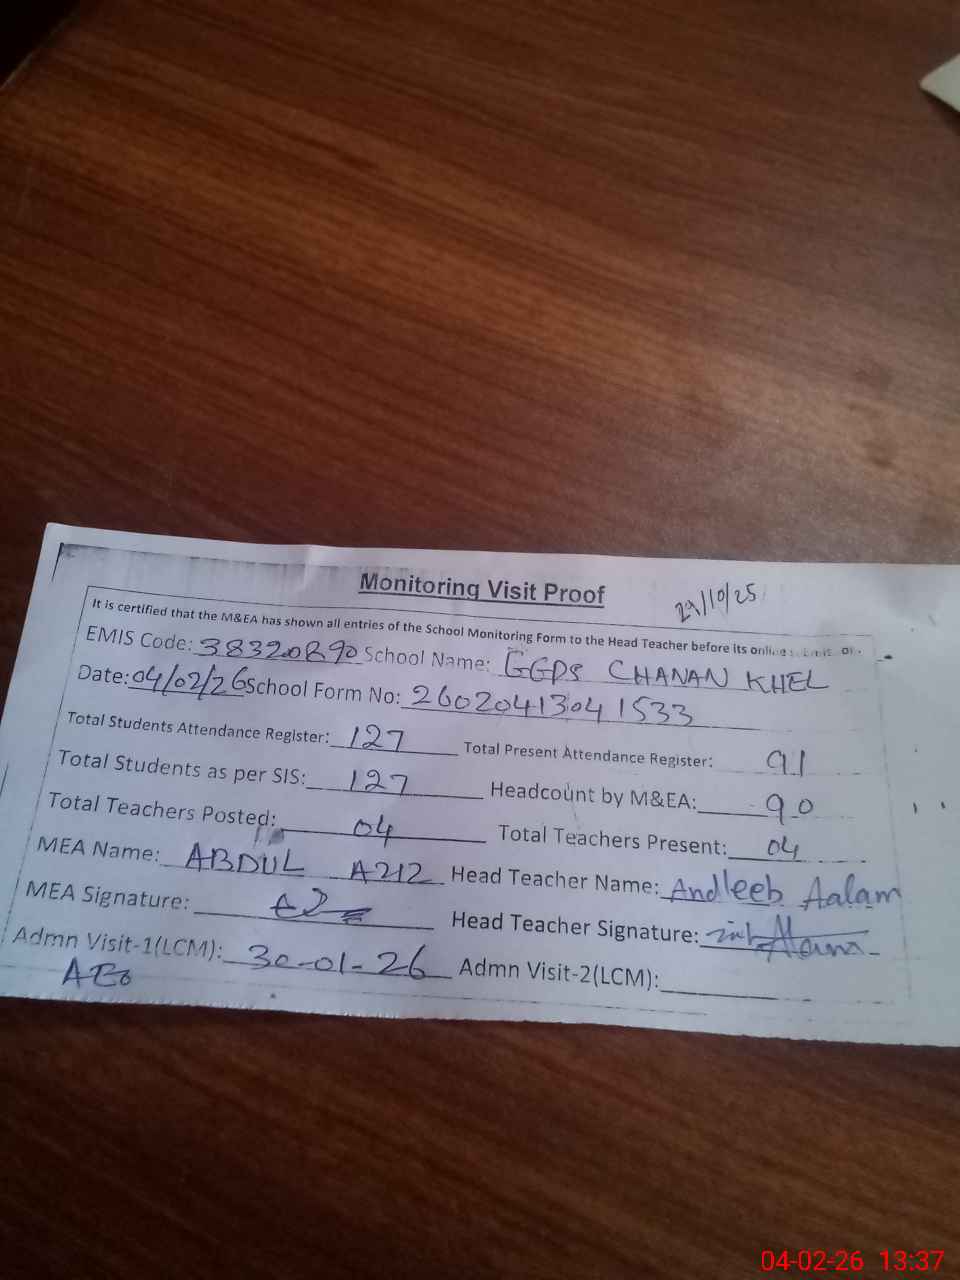 Monitoring Visit Proof
29/10/25
It is certified that the M&EA has shown all entries of the School Monitoring Form to the Head Teacher before its online
EMIS Code: 38320890 School Name: GGPS CHANAN KHEL
Date: 04/02/26 School Form No: 26020413041533
Total Students Attendance Register: 127 Total Present Attendance Register: 91
Total Students as per SIS: 127 Headcount by M&EA: 90
Total Teachers Posted: 04 Total Teachers Present: 04
MEA Name: ABDUL AZIZ Head Teacher Name: Andleeb Aalam
MEA Signature: Head Teacher Signature:
Admn Visit-1(LCM): 30-01-26 Admn Visit-2(LCM):
AEO
04-02-26 13:37